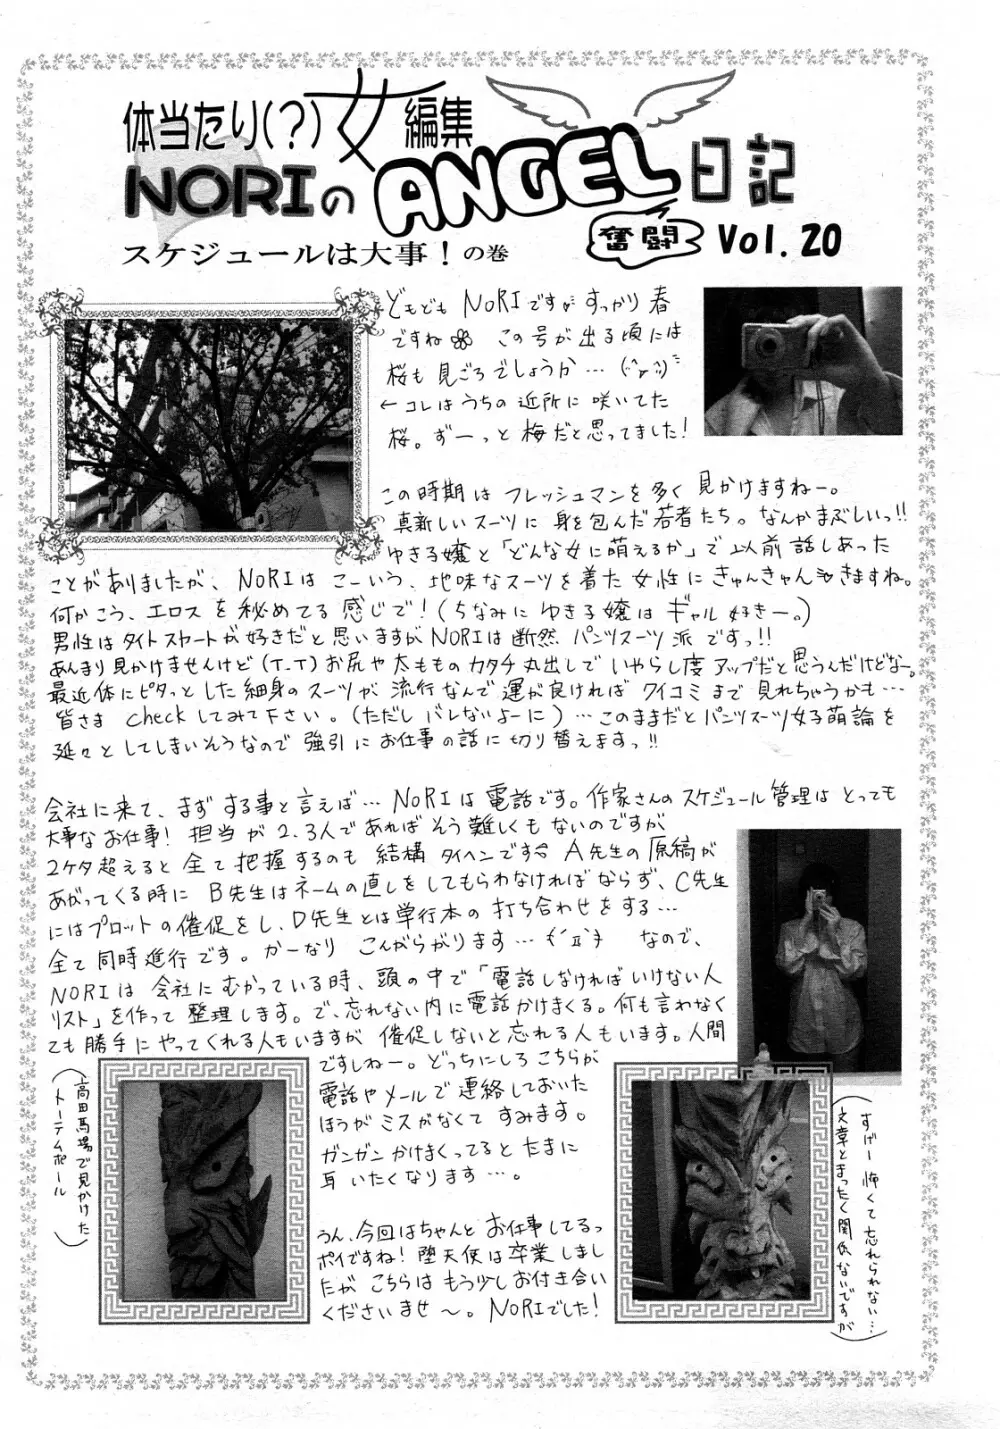 体当たり(?)女編集
NORIのANGEL日記
奮闘 Vol.20
スケジュールは大事!の巻
どもども NORIですが すっかり春
ですね この号が出る頃には
桜も見ごろでしょうか…
←コレはうちの近所に咲いてた
桜。ずーっと梅だと思ってました!
この時期は フレッシュマンを多く 見かけますねー。
真新しいスーツに 身を包んだ若者たち。なんかまぶしいっ!!
ゆき子嬢と「どんな女に萌えるか」で以前話しあった
ことがありましたが、NORIは こーいう、地味なスーツを着た女性に きゅんきゅんきますね。
何かこう、エロスを秘めてる感じで!(ちなみに ゆき子嬢は ギャル好きー。)
男性はタイトスカートが好きだと思いますがNORIは断然 パンツスーツ派ですっ!!
あんまり見かけませんけど(T_T)お尻や太もものカタチ丸出しで いやらし度アップだと思うんだけどなー。
最近体にピタッとした細身のスーツが 流行なんで運が良ければ ワイコミまで見れちゃうかも…
皆さま checkしてみて下さい。(ただし バレないよーに)…このままだとパンツスーツ女子萌論を
延々としてしまいそうなので 強引にお仕事の話に切り替えますっ!!
会社に来て、まずする事と言えば… NORIは電話です。作家さんのスケジュール管理は とっても
大事なお仕事! 担当が2、3人であればそう難しくもないのですが
2ケタ超えると全て把握するのも 結構タイヘンです A先生の原稿が
あがってくる時に B先生はネームの直しをしてもらわなければならず、C先生
にはプロットの催促をし、D先生とは単行本の打ち合わせをする…
全て同時進行です。かーなり こんがらがります… なので、
NORIは 会社にむかっている時、頭の中で「電話しなければいけない人
リスト」を作って整理します。で、忘れない内に電話かけまくる。何も言わなく
ても勝手にやってくれる人もいますが 催促しないと忘れる人もいます。人間
ですしねー。どっちにしろこちらが
電話やメールで連絡しておいた
ほうがミスがなくてすみます。
ガンガンかけまくってるとたまに
耳いたくなります…。
うん、今回はちゃんと お仕事してるっ
ポイですね! 堕天使は卒業しまし
たが こちらは もう少しお付き合い
くださいませ〜。NORIでした!
(高田馬場で見かけた
トーテムポール)
(すげー怖くて忘れられない…
文章とまったく関係ないですが)